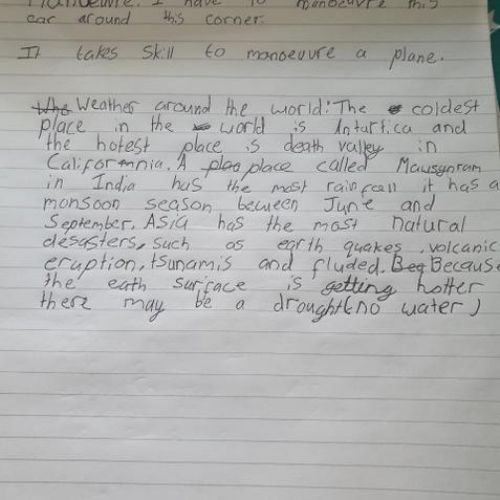 manoeuvre. I have to manoeuvre this
car around this corner.
It takes skill to manoeuvre a plane.
Weather around the world: The coldest
place in the world is Anturtica and
the hotest place is death valley in
Califormnia. A place called Mawsynram
in India has the most rainfcall it has a
monsoon season between June and
September. Asia has the most natural
desasters, such as earth quakes, volcanic
eruption, tsunamis and fluded. Because
the eath surface is getting hotter
there may be a drought (no water)